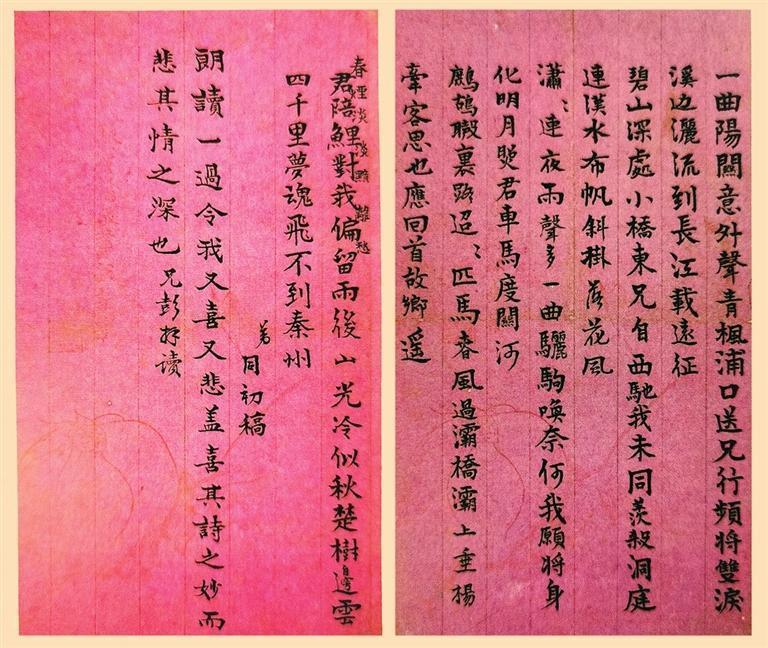 一曲陽關意外聲青楓浦口送兄行頻將雙淚
溪边灑流到長江載遠征
碧山深處小橋東兄自西馳我未同羨殺洞庭
連漢水布帆斜掛落花風
瀟〻連夜雨聲多一曲驪駒喚奈何我願將身
化明月照君車馬度關河
鷓鴣裏路迢〻匹馬春風過灞橋灞上垂楊
牽客思也應回首故鄉遥
春煙淡淡黯離愁
君陪鯉對我偏留雨後山光冷似秋楚樹邊雲
四千里夢魂飛不到秦州
弟同初稿
朗讀一過令我又喜又悲盖喜其詩之妙而
悲其情之深也兄彭读